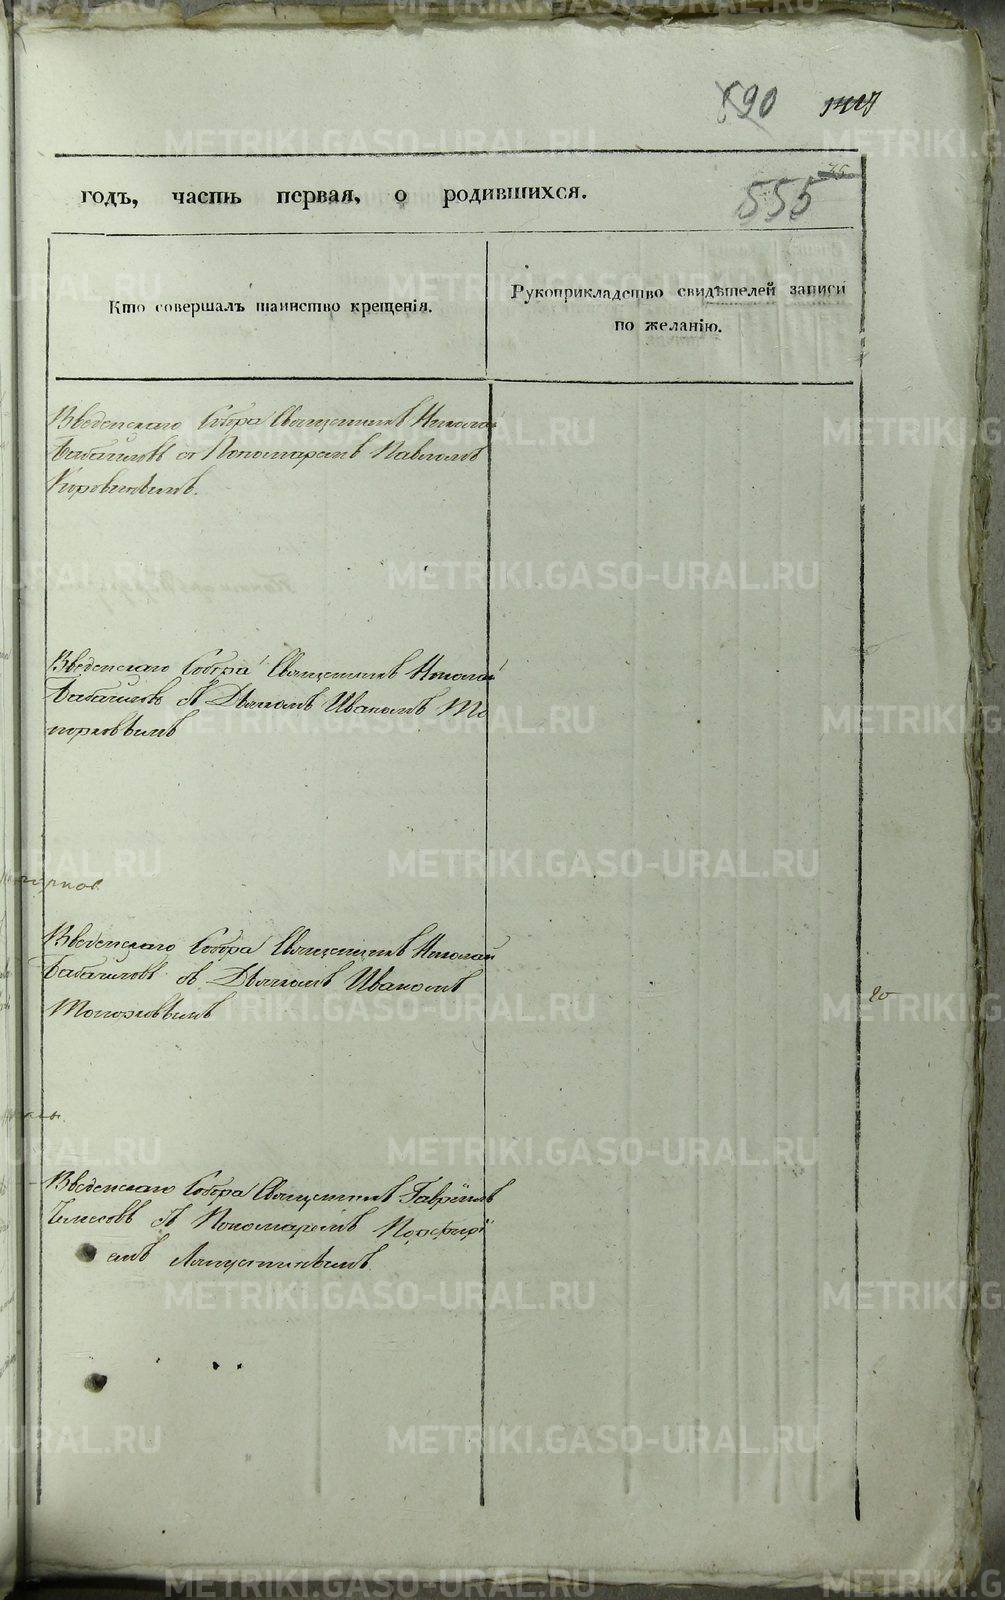 690
555
годъ, часть первая, о родившихся.
Кто совершалъ таинство крещенія.
Рукоприкладство свидѣтелей записи
по желанію.
Введенскаго Собора Священникъ Николай
Бабайловъ съ Пономаремъ Павломъ
Введенскаго Собора Священникъ Николай
Бабайловъ съ Діакономъ Иваномъ То
порковымъ
Введенскаго Собора Священникъ Николай
Бабайловъ съ Діакономъ Иваномъ
Топорковымъ
Введенскаго Собора Священникъ Гавріилъ
съ Пономаремъ Порфирі
емъ Ляпустинымъ
METRIKI.GASO-URAL.RU